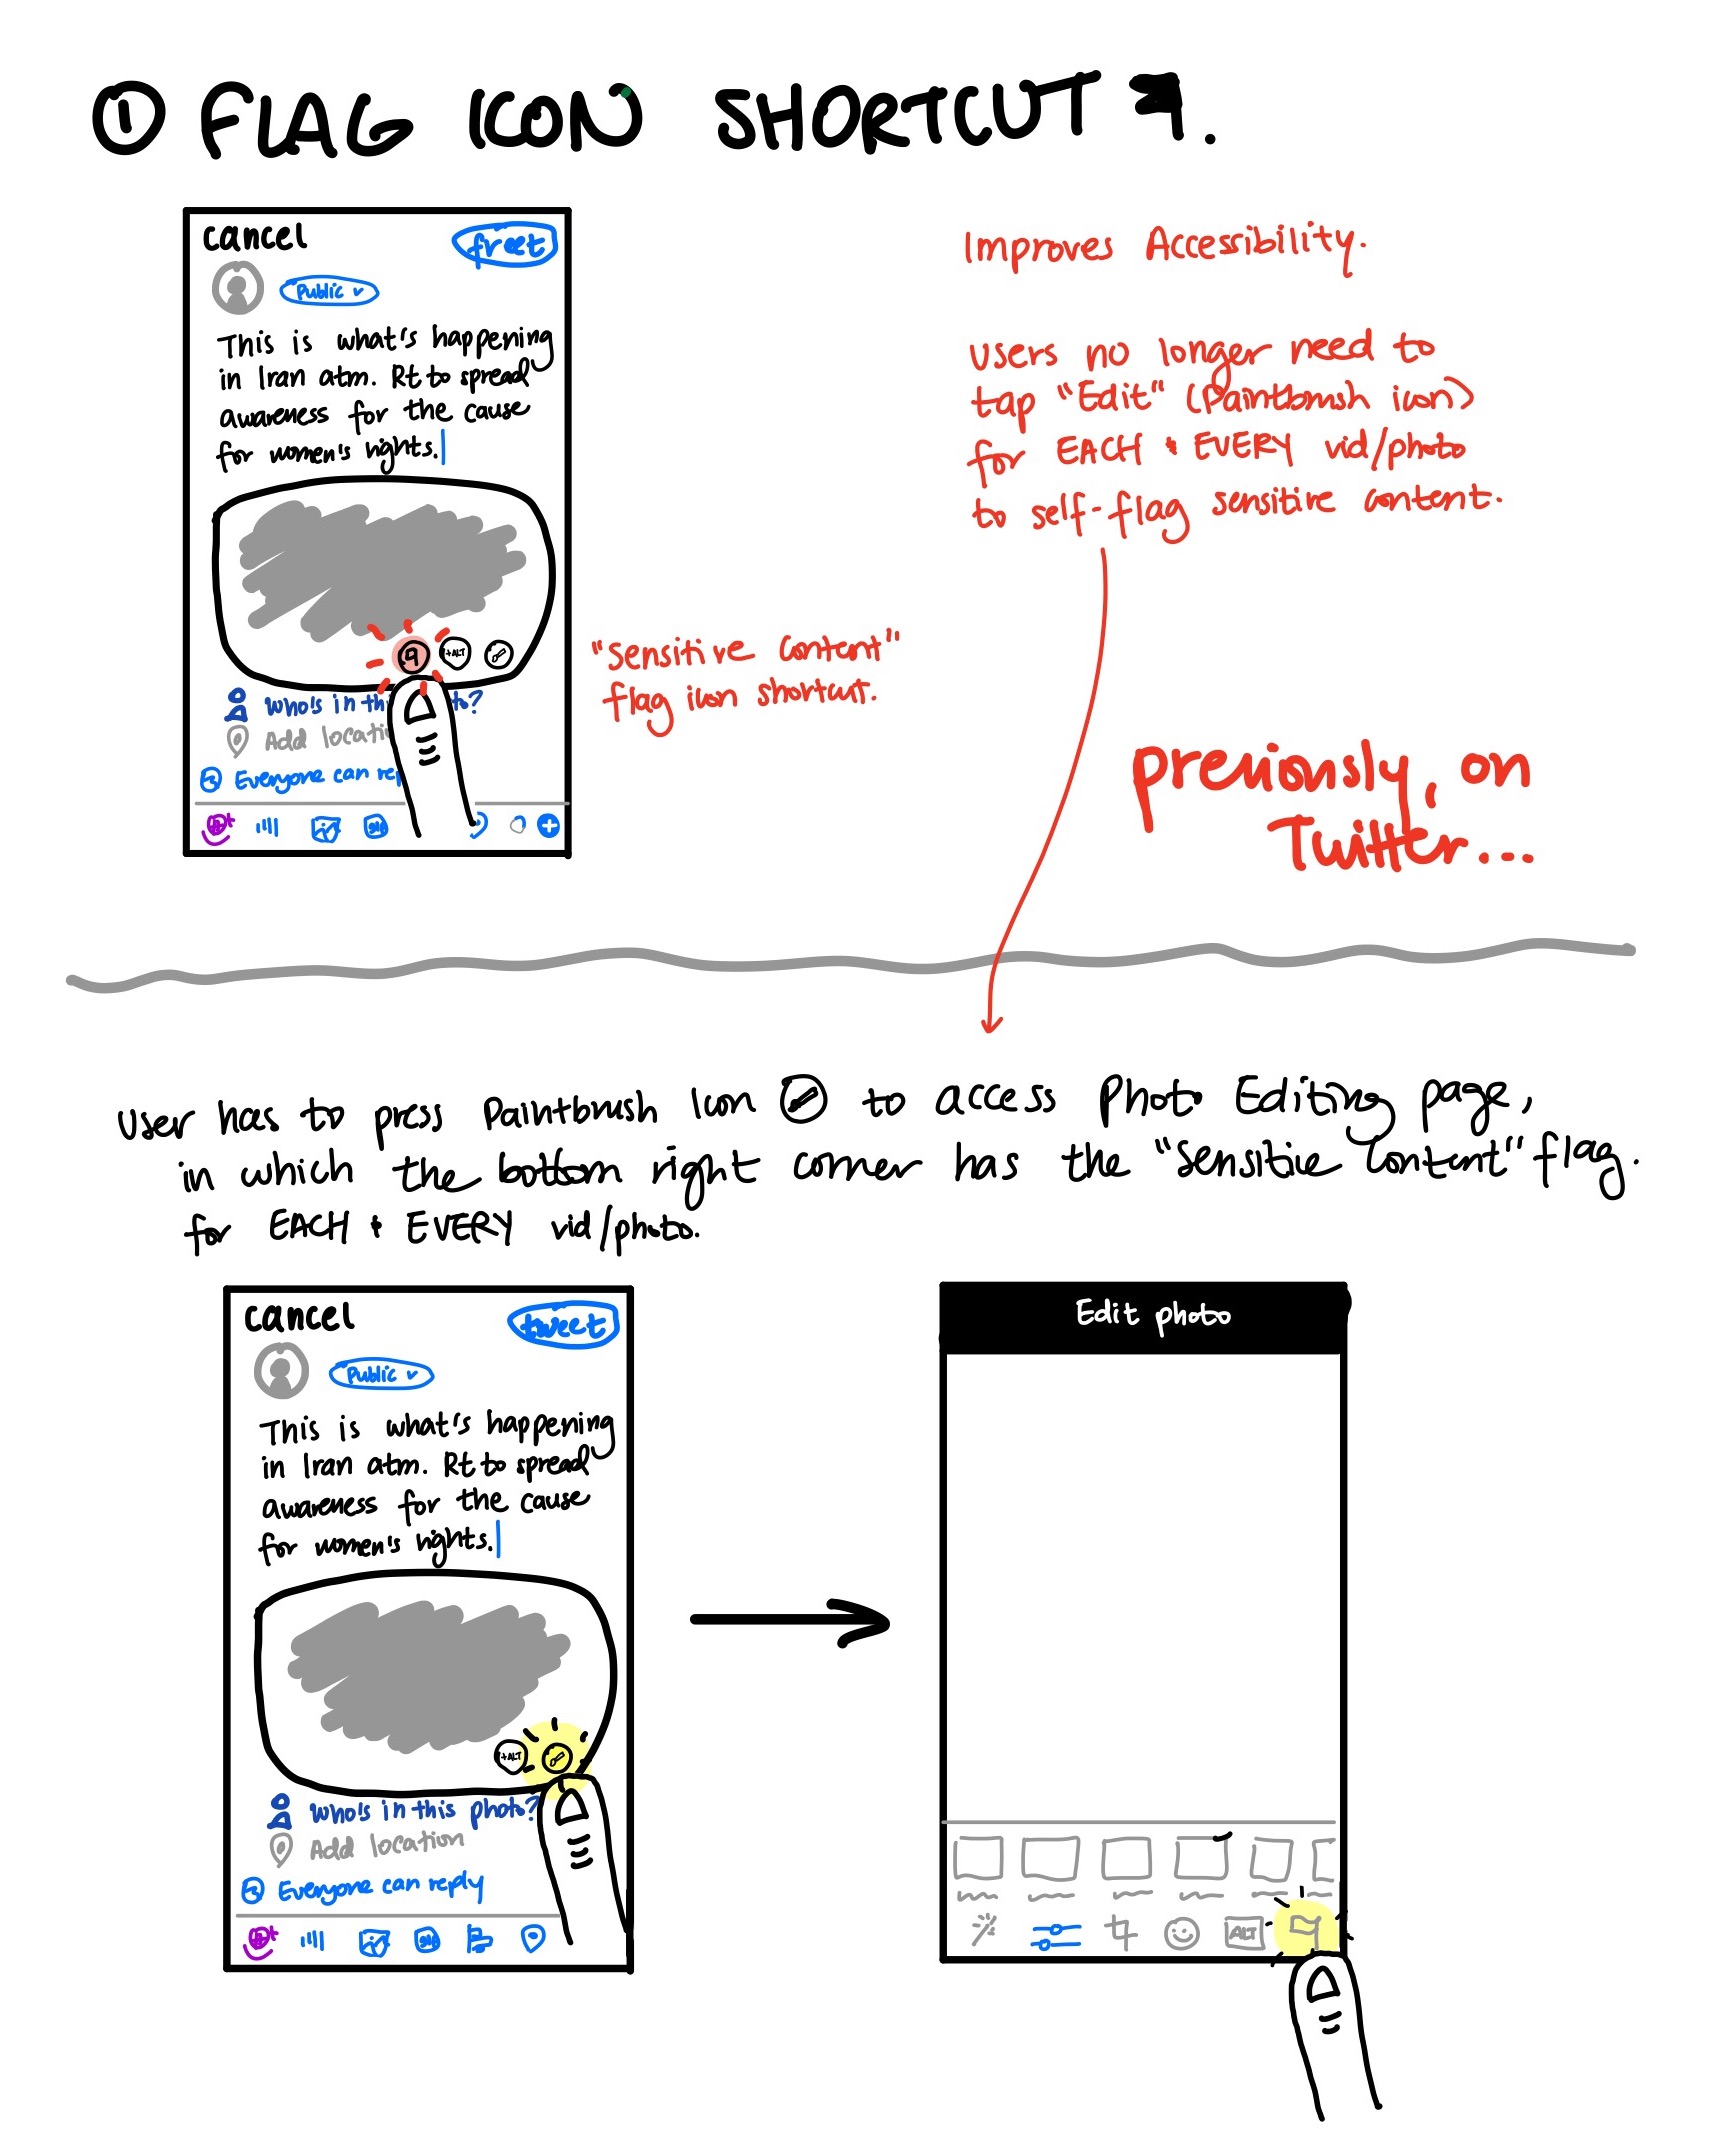 ① FLAG ICON SHORTCUT .
cancel
freet
Public
This is what's happening
in Iran atm. Rt to spread
awareness for the cause
for women's rights.
+ALT
Who's in th to?
Add locati
Everyone can rep
Improves Accessibility.
users no longer need to
tap "Edit" (Paintbrush icon)
for EACH & EVERY vid/photo
to self-flag sensitive content.
"Sensitive Content"
flag icon shortcut.
previously, on
Twitter...
User has to press Paintbrush Icon to access Photo Editing page,
in which the bottom right corner has the "Sensitive Content" flag.
for EACH & EVERY vid/photo.
cancel
tweet
Public
This is what's happening
in Iran atm. Rt to spread
awareness for the cause
for women's rights.
+ALT
Who's in this photo?
Add location
Everyone can reply
Edit photo
ALT